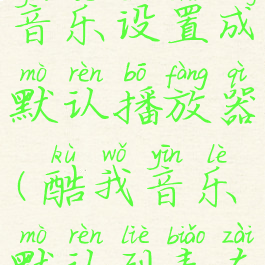 音乐设置成
mò rèn bō fàng qì
默认播放器
kù wǒ yīn lè
(酷我音乐
mò rèn liè biǎo zài
默认列表在